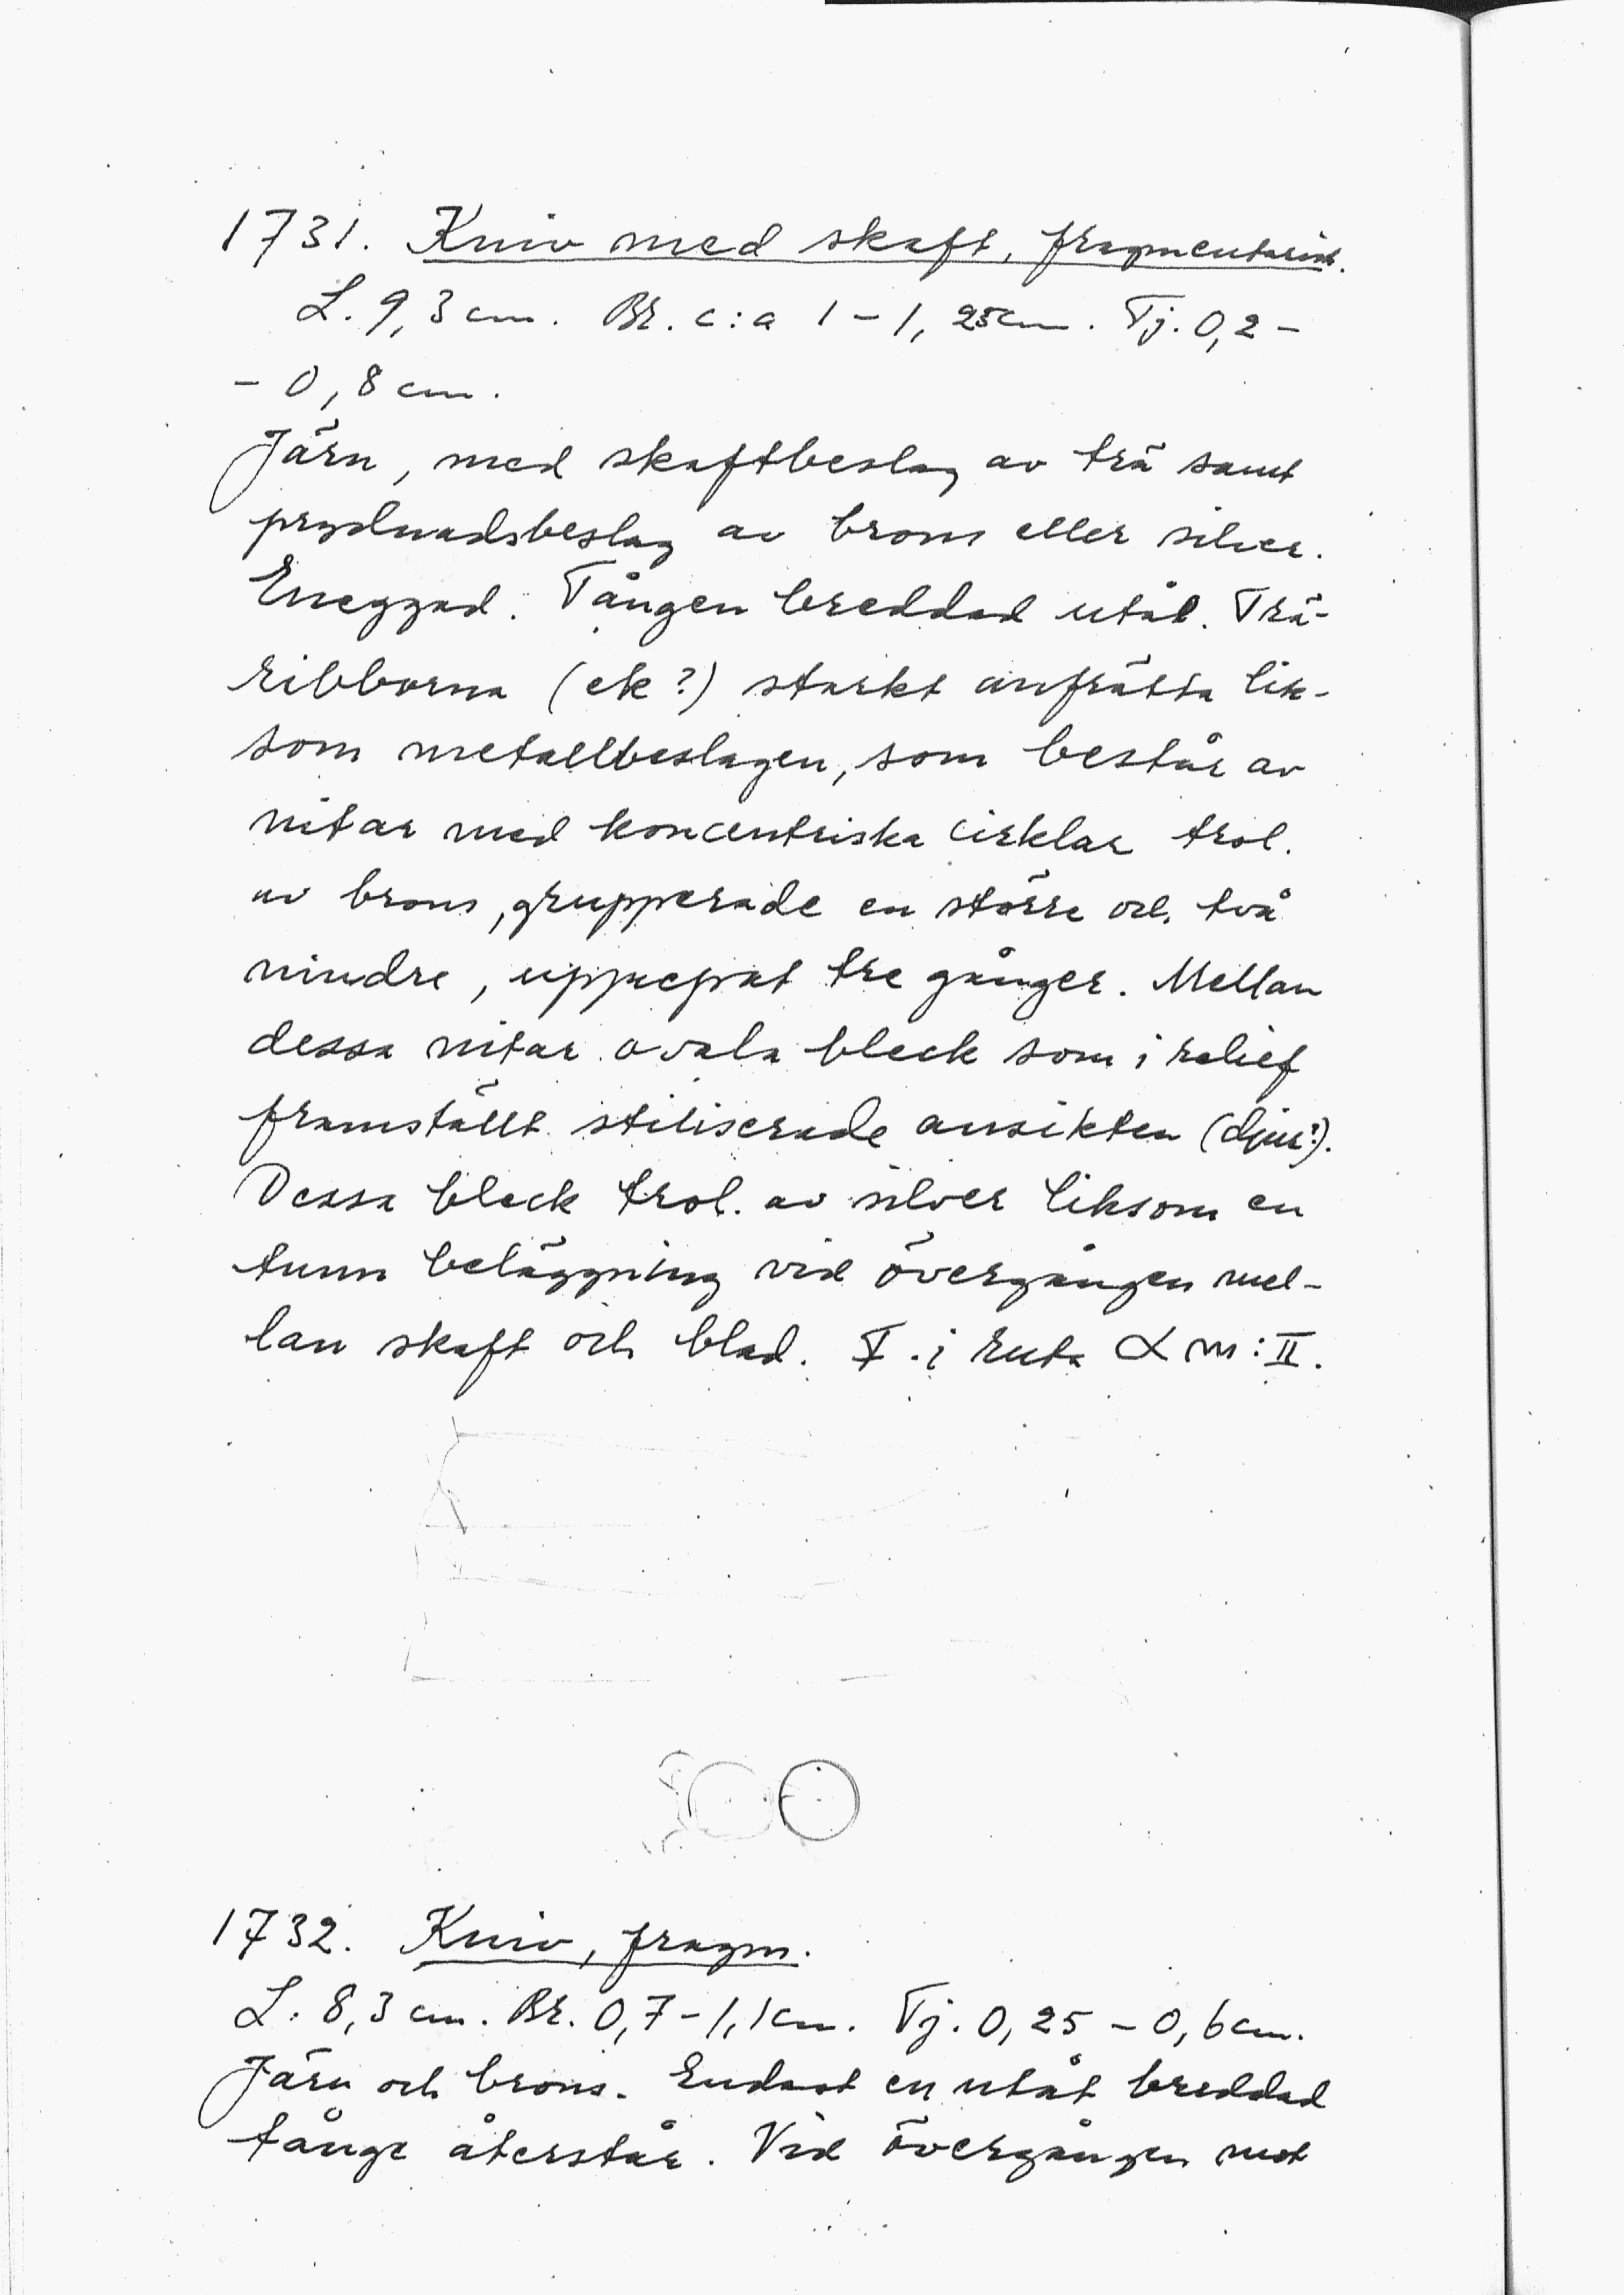 1731. Kniv med skaft, fragmentarisk.
L. 9,3 cm. Br. c:a 1 - 1,25 cm. Tj. 0,2 -
- 0,8 cm.
Järn, med skaftbeslag av trä samt
prydnadsbeslag av brons eller silver.
Eneggad. Tången breddad utåt. Trä-
ribborna (ek?) starkt anfrätta lik-
som metallbeslagen, som består av
nitar med koncentriska cirklar trol.
av brons, grupperade en större och två
mindre, upprepat tre gånger. Mellan
dessa nitar ovala bleck som i relief
framställt stiliserade ansikten (djur?).
Dessa bleck trol. av silver liksom en
tunn beläggning vid övergången mel-
lan skaft och blad. F. i ruta α m:II.
1732. Kniv, fragm.
L. 8,3 cm. Br. 0,7 - 1,1 cm. Tj. 0,25 - 0,6 cm.
Järn och brons. Endast en utåt breddad
tånge återstår. Vid övergången mot